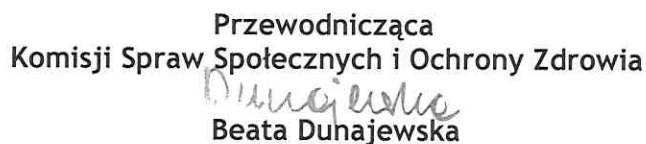 Przewodnicząca
Komisji Spraw Społecznych i Ochrony Zdrowia
Dunajewska
Beata Dunajewska